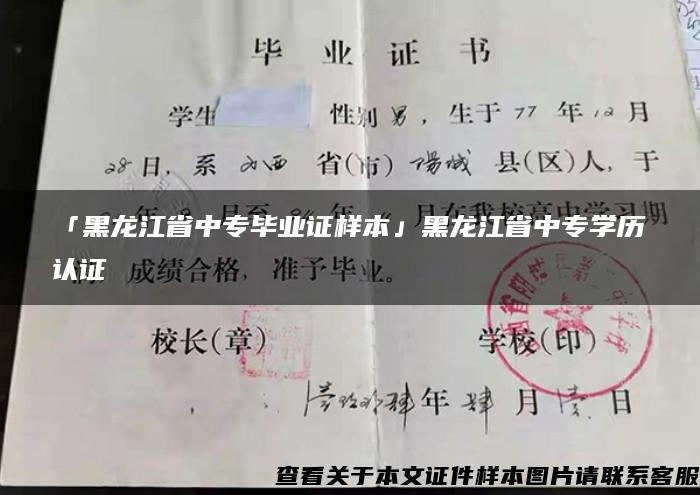 毕业证书
学生 性别男，生于77年12月
28日，系 山西 省(市) 阳城 县(区)人，于
月至 年 月在我校高中学习期
「黑龙江省中专毕业证样本」黑龙江省中专学历
认证
成绩合格，准予毕业。
校长(章) 学校(印)
年 肆 月 壹 日
查看关于本文证件样本图片请联系客服